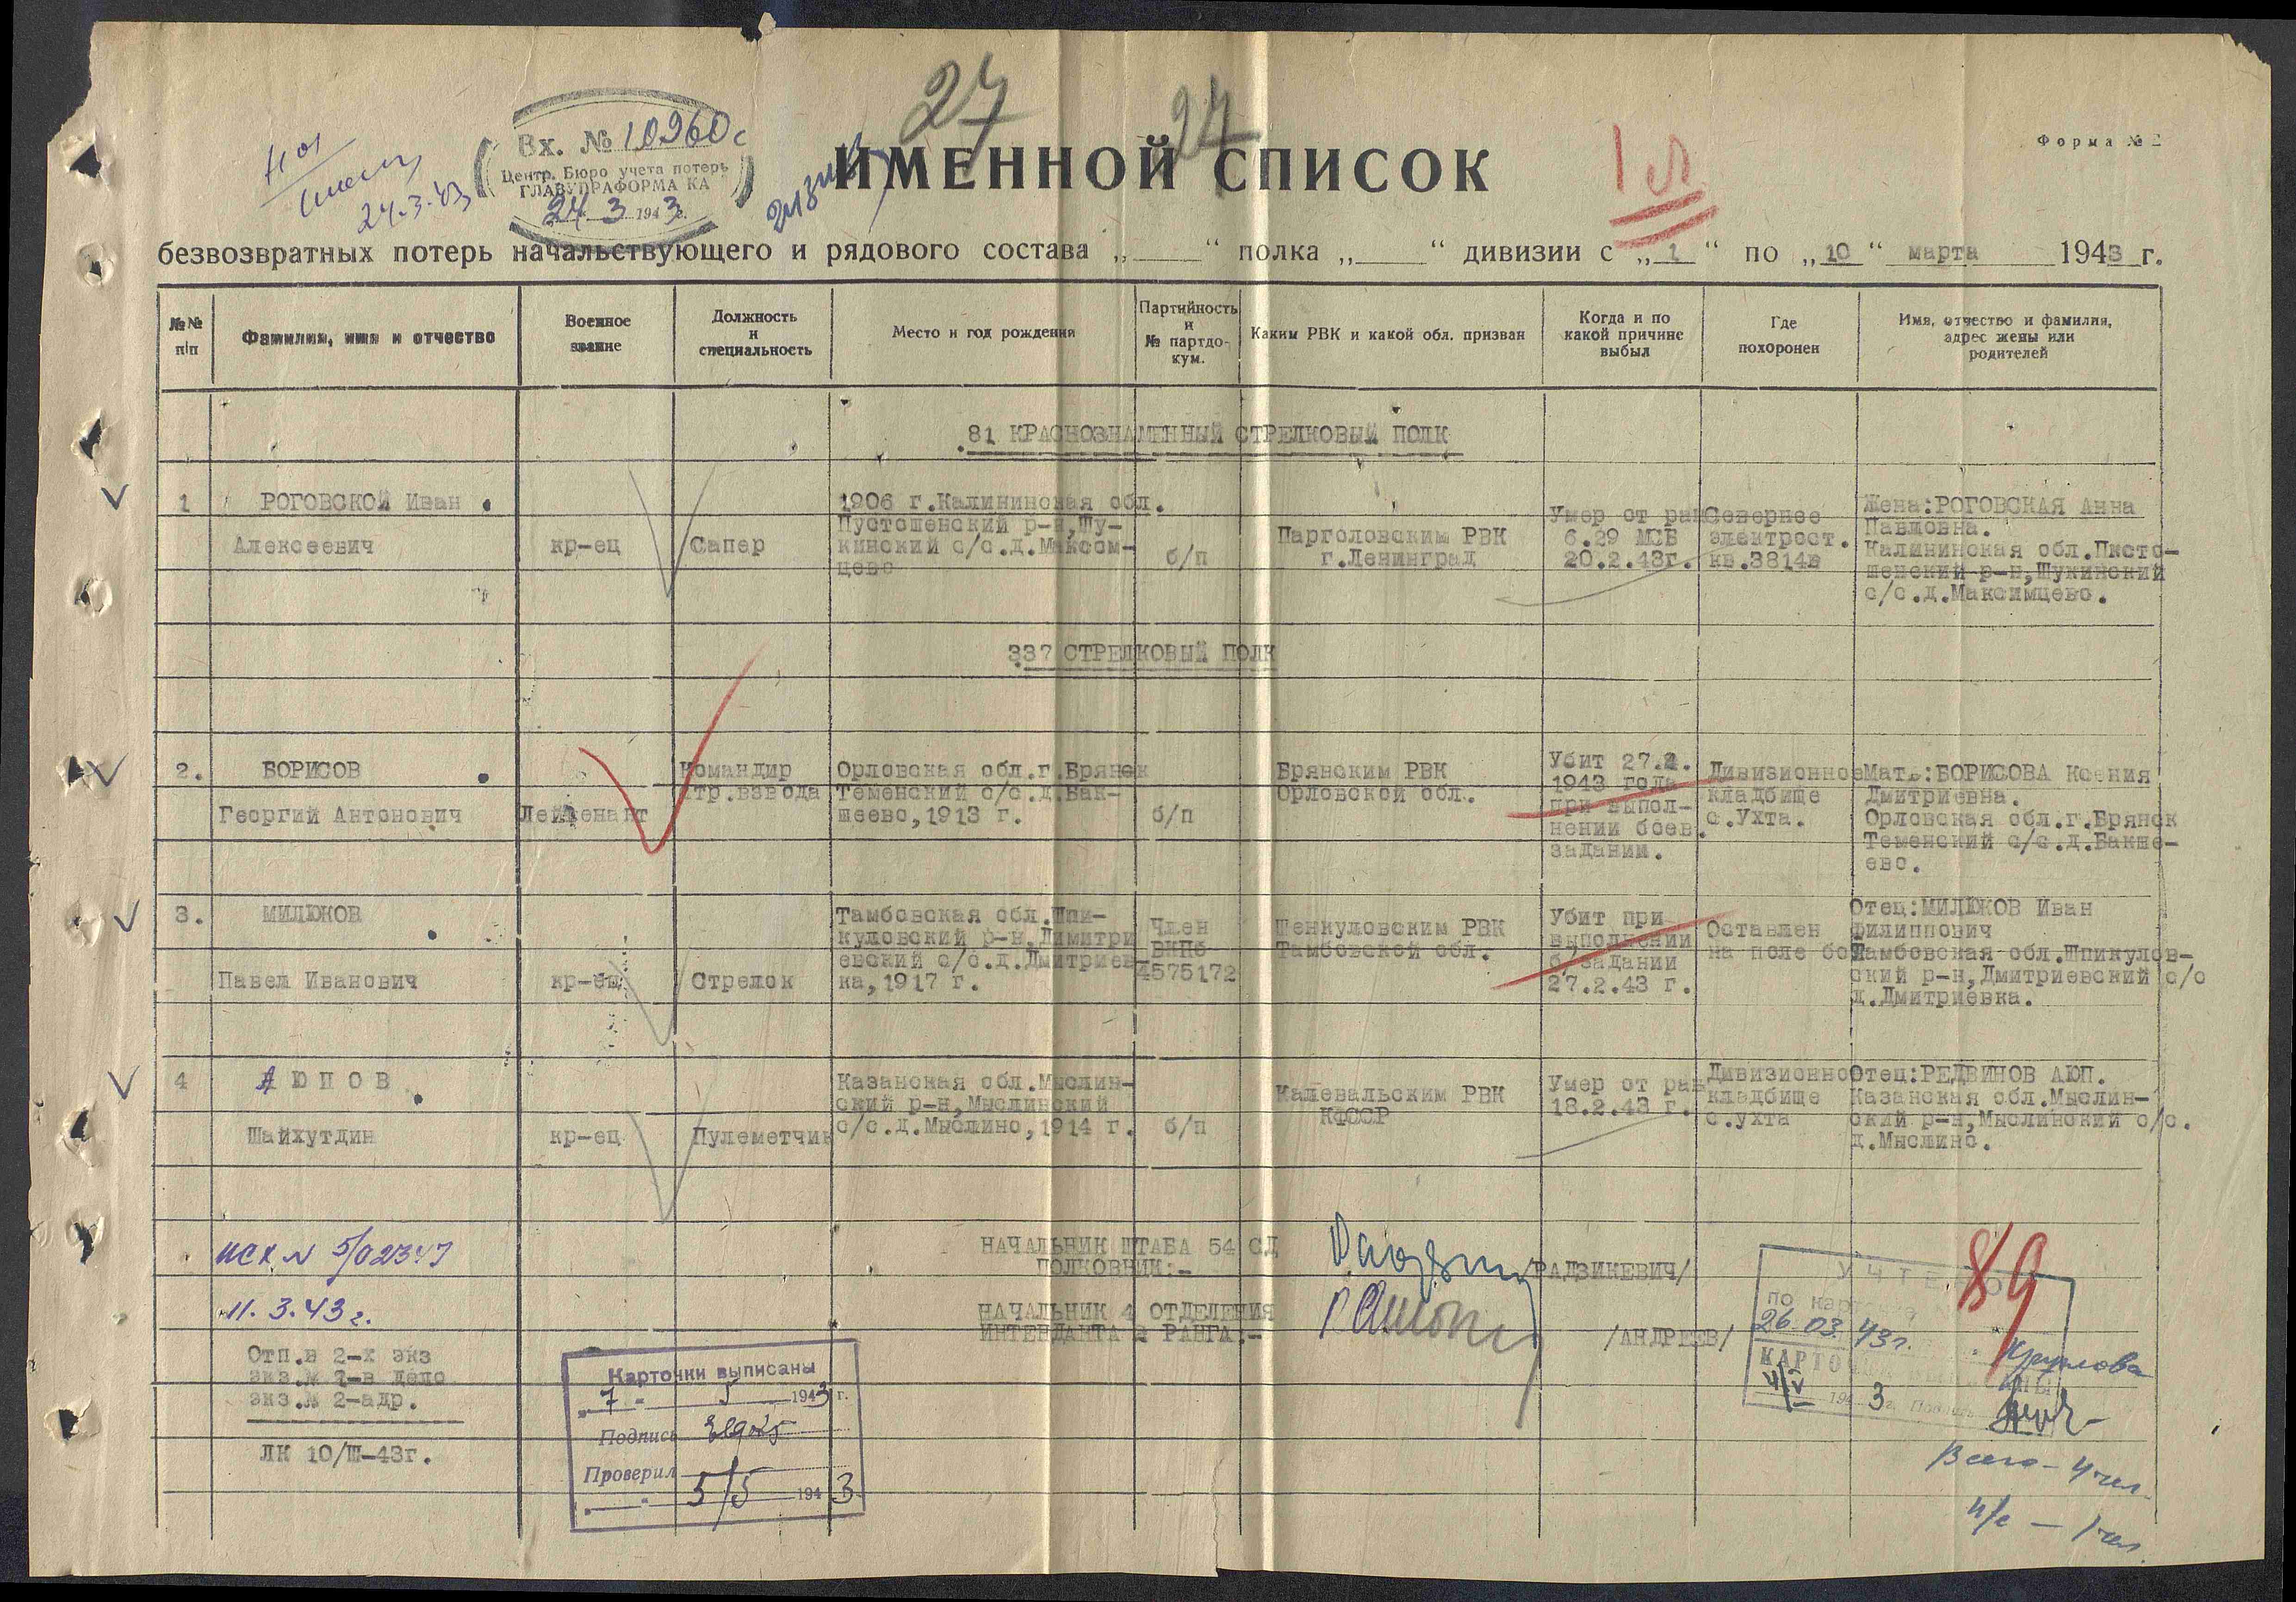 27 27
Вх. № 10960с
Центр. Бюро учета потерь
ГЛАВУПРАФОРМА КА
24 3 1943 г.
24.3.43
ИМЕННОЙ СПИСОК
1 л
Форма № 2
безвозвратных потерь начальствующего и рядового состава „____“ полка „____“ дивизии с „1“ по „10“ марта 1943 г.
№№ п/п
Фамилия, имя и отчество
Военное звание
Должность и специальность
Место и год рождения
Партийность и № партдо-кум.
Каким РВК и какой обл. призван
Когда и по какой причине выбыл
Где похоронен
Имя, отчество и фамилия, адрес жены или родителей
81 КРАСНОЗНАМЕННЫЙ СТРЕЛКОВЫЙ ПОЛК
1
РОГОВСКОЙ Иван
Алексеевич
кр-ец
Сапер
1906 г.Калининская обл.
Пустошенский р-н,Шу-
кинский с/с.д.Максом-
цево
б/п
Парголовским РВК
г.Ленинград
Умер от ран
6.29 МСБ
20.2.43г.
Севернее
электрост.
кв.3814в
Жена:РОГОВСКАЯ Анна
Павловна.
Калининская обл.Писто-
шенский р-н,Шукинский
с/с.д.Максимцево.
337 СТРЕЛКОВЫЙ ПОЛК
2.
БОРИСОВ
Георгий Антонович
Лейтенант
Командир
стр.взвода
Орловская обл.г.Брянск
Теменский с/с.д.Бак-
шеево,1913 г.
б/п
Брянским РВК
Орловской обл.
Убит 27.2.
1943 года
при выпол-
нении боев.
задании.
Дивизионное
кладбище
с.Ухта.
Мать:БОРИСОВА Ксения
Дмитриевна.
Орловская обл.г.Брянск
Теменский с/с.д.Бакше-
ево.
3.
МИЛЮКОВ
Павел Иванович
кр-ец
Стрелок
Тамбовская обл.Шпи-
куловский р-н,Димитри
евский с/с.д.Дмитриев
ка,1917 г.
Член
ВКПб
4575172
Шенкуловским РВК
Тамбовской обл.
Убит при
выполнении
б/задании
27.2.43 г.
Оставлен
на поле боя
Отец:МИЛЮКОВ Иван
Филиппович
Тамбовская обл.Шпикулов-
ский р-н,Дмитриевский с/с
д.Дмитриевка.
4
АЮПОВ
Шайхутдин
кр-ец
Пулеметчик
Казанская обл.Мыслин-
ский р-н,Мыслинский
с/с.д.Мыслино,1914 г.
б/п
Калевальским РВК
КФССР
Умер от ран
18.2.43 г.
Дивизионно
кладбище
с.ухта
Отец:РЕДВИНОВ АЮП.
Казанская обл.Мыслин-
ский р-н,Мыслинский с/с.
д.Мыслино.
исх N 5/02347
11.3.43г.
НАЧАЛЬНИК ШТАБА 54 СД
ПОЛКОВНИК:-
/РАДЗИКЕВИЧ/
НАЧАЛЬНИК 4 ОТДЕЛЕНИЯ
ИНТЕНДАНТА 2 РАНГА:-
/АНДРЕЕВ/
Отп.в 2-х экз
экз.№ 1-в дело
экз.№ 2-адр.
ЛК 10/Ш-43г.
Карточки выписаны
„7“ 5 1943 г.
Подпись
Проверил
5/5 1943
УЧТЕНО
26.03.43г.
Крулова
4/V 1943 г.
89
Всего - 4 чел.
н/с - 1 чел.